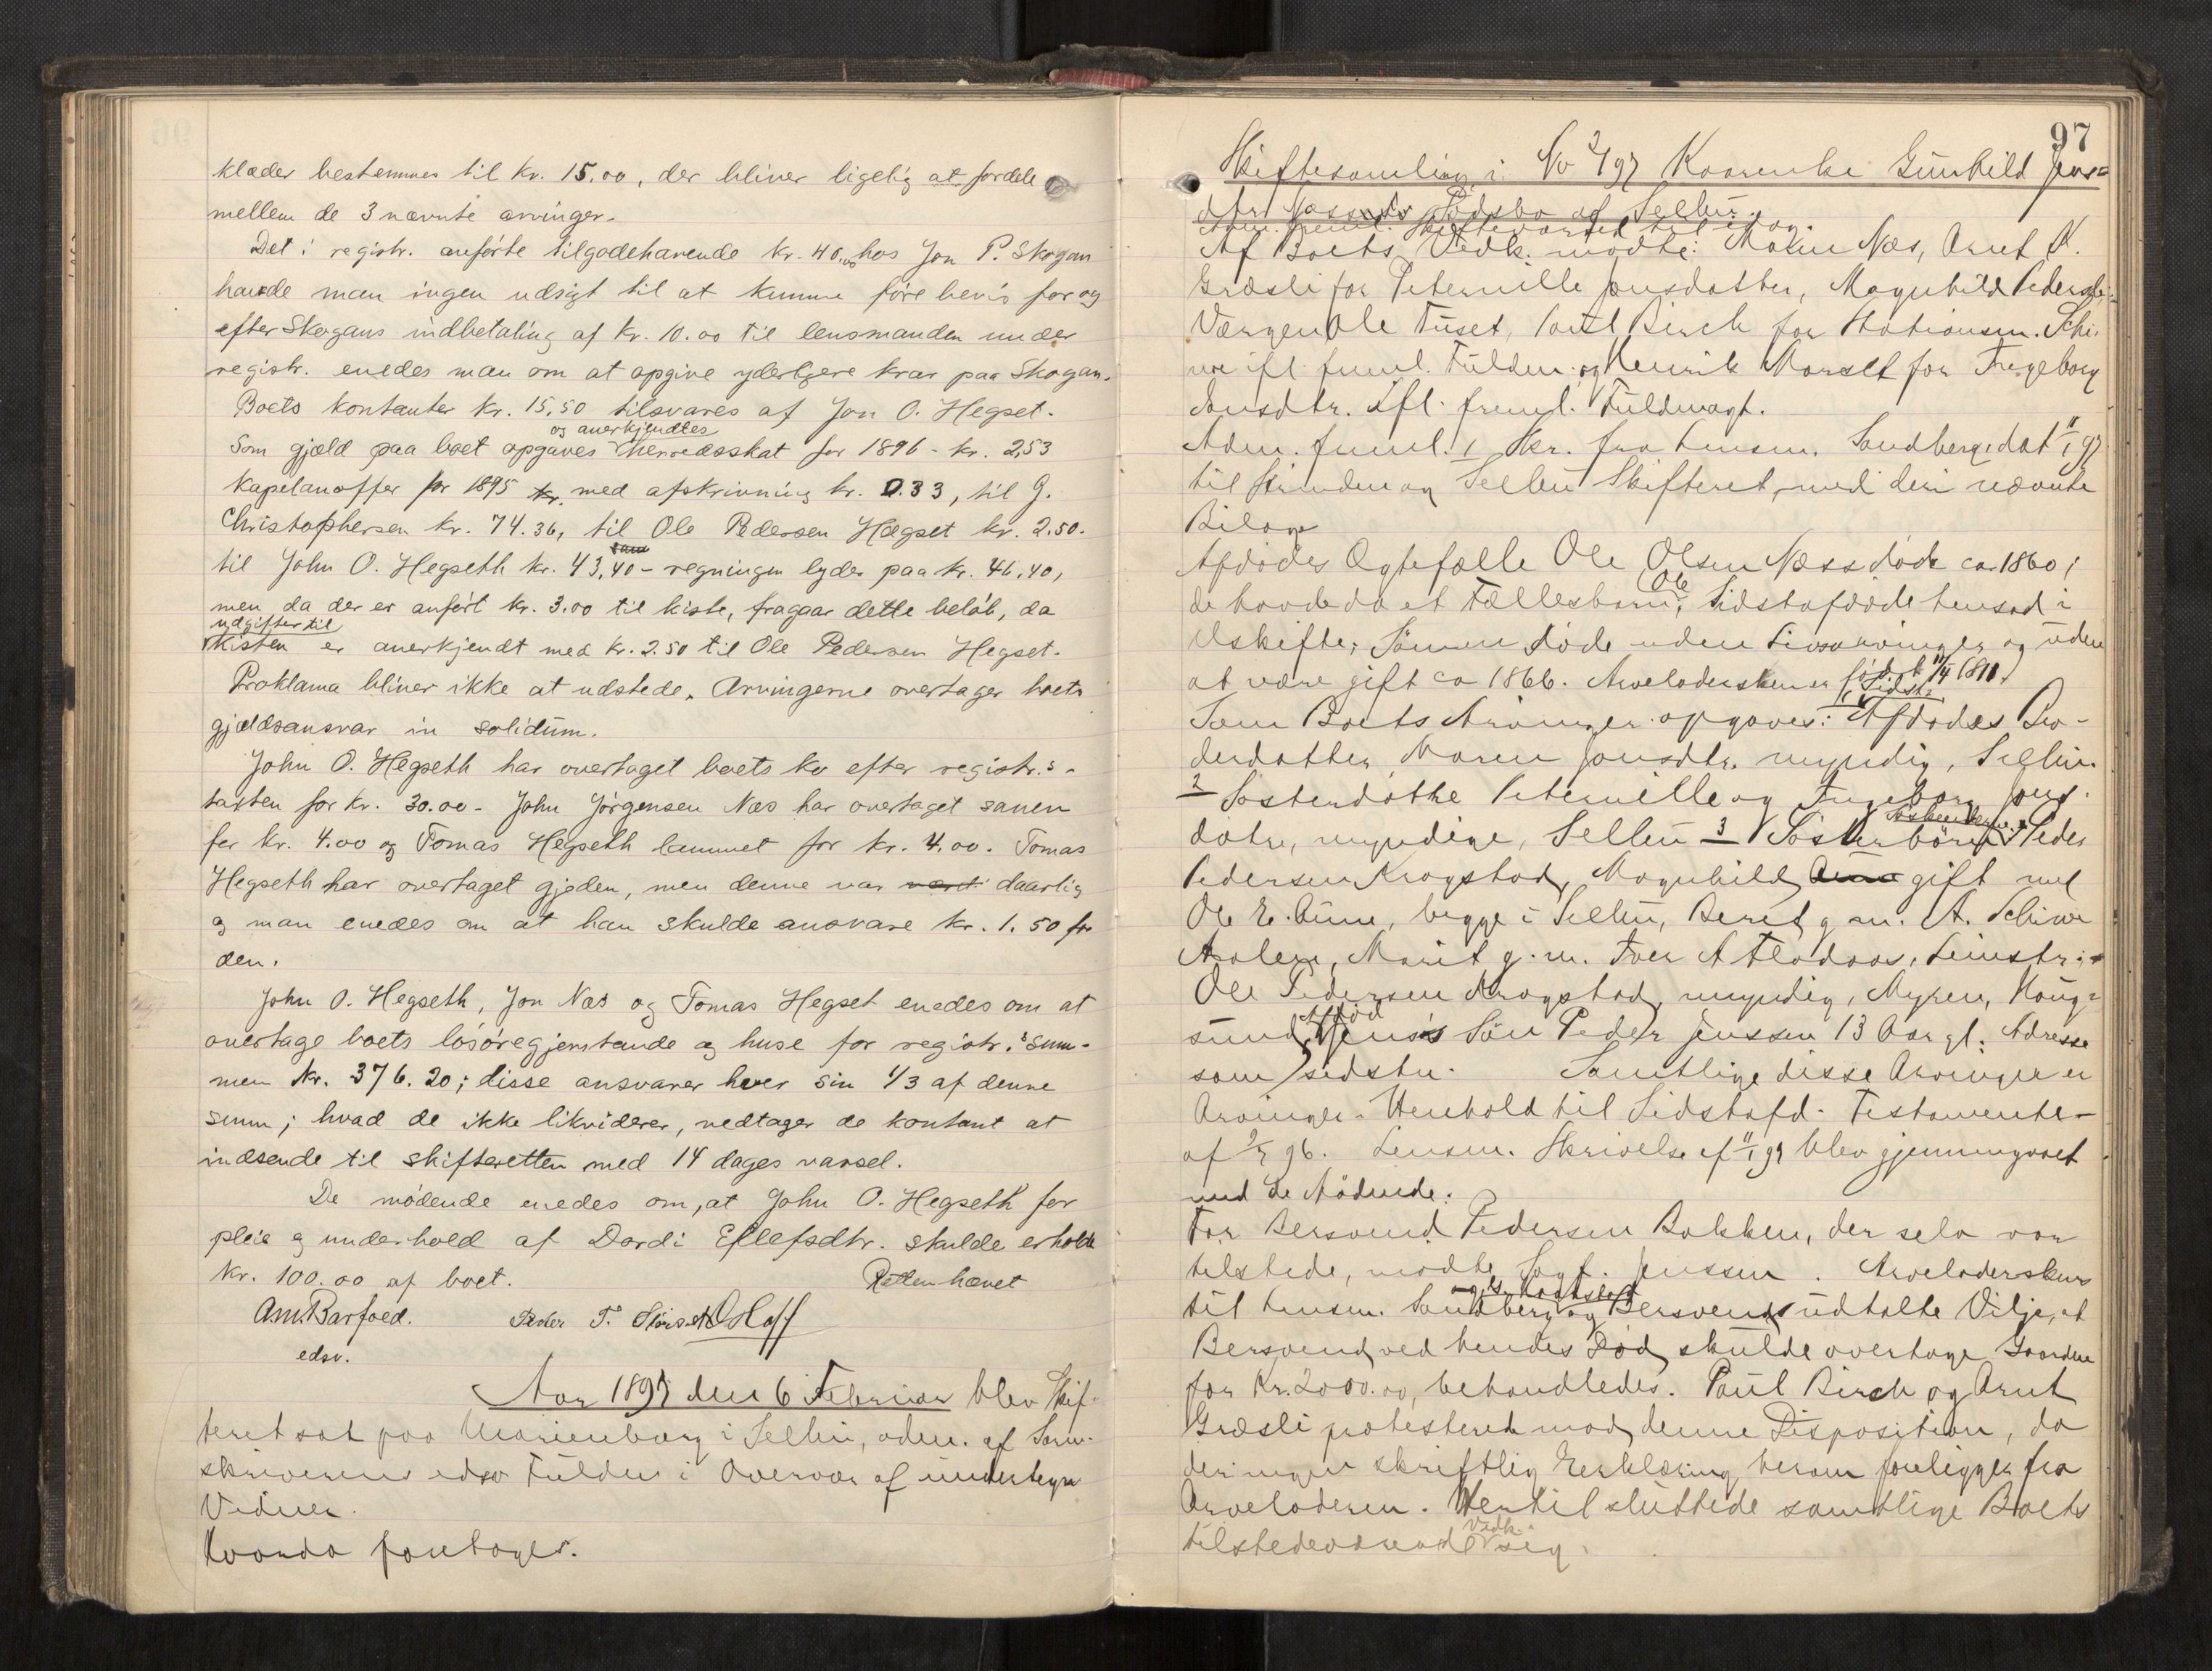 klæder bestemmes til kr. 15.00, der bliver ligelig at fordele
mellem de 3 nævnte arvinger.
Det i registr. anförte tilgodehavende kr. 40.00 hos Jon P. Skogan
havde man ingen udsigt til at kunne före bevis for og
efter Skogans indbetaling af kr. 10.00 til lensmanden under
registr. enedes man om at opgive yderligere krav paa Skogan.
Boets kontanter kr. 15,50 tilsvares af Jon O. Hegset.
og anerkjendtes
Som gjæld paa boet opgaves herredsskat for 1896 - kr. 2,53
kapelanoffer for 1895 kr. med afskrivning kr. 0.33, til J.
Christophersen kr. 74.36, til Ole Pedersen Hegset kr. 2.50.
til John O. Hegseth kr. 43,40 - regningen lyder paa kr. 46,40,
men da der er anfört kr. 3.00 til kiste, fragaar dette belöb, da
udgifter til
kisten er anerkjendt med kr. 2.50 til Ole Pedersen Hegset.
Proklama bliver ikke at udstede. Arvingerne overtager boets
gjældsansvar in solidum.
John O. Hegseth har overtaget boets ko efter registr.s-
taxten for kr. 30.00 - John Jörgensen Næs har overtaget sauen
for kr. 4.00 og Tomas Hegseth lammet for kr. 4.00. Tomas
Hegseth har overtaget gjeden, men denne var været daarlig
og man enedes om at han skulde ansvare kr. 1.50 for
den.
John O. Hegseth, Jon Næs og Tomas Hegset enedes om at
overtage boets lösöregjenstande og huse for registr.s sum-
men kr. 376.20; disse ansvarer hver sin 1/3 af denne
sum; hvad de ikke likviderer, vedtager de kontant at
indsende til skifteretten med 14 dages varsel.
De mödende enedes om, at John O. Hegseth for
pleie og underhold af Dordi Ellefsdtr. skulde erholde
kr. 100.00 af boet. Retten hævet
A.M. Barfoed. Peder T. Hoff
edsv.
Aar 1897 den 6 Februar blev Skif-
teret sat paa Marienborg i Selbu, adm. af Soren-
skriverens edsv Fuldm i Overvær af undertegn
Vidner.
Hvorda foretoges.
97
Skiftesamling i No 2/97 Kaarenke Gunhild Jens=
dtr Næss Dødsbo af Selbu.
Adm. freml. Skiftevarsel til idag.
Af Boets Vedk. mödte: Maren Næs, Arnt K.
Græsli for Peternille Jensdatter, Magnhild Pedersd.
Værgen Ole Tuset, Paul Birch for Stationsm. Schi-
ve ifl. freml. Fuldm. og Henrik Morset for Ingeborg
Jensdtr. ifl. freml. Fuldmagt.
Adm. freml. 1 Skr. fra Lensm. Sandberg dat 11/1 97
til Strinden og Selbu Skifteret, med deri nævnte
Bilage
Afdödes Ægtefælle Ole Olsen Næss döde ca 1860;
Ole
de havde da et Fællesbarn, Sidstafdöde hensad i
Uskifte; Sønnen döde uden Livsarvinger og uden
at være gift ca 1866. Arveladersken er född 11/4 1811.
Sidst-
Som Boets Arvinger opgaves: Afdødes Bro-
derdatter Maren Jonsdtr. myndig, Selbu.
2 Søsterdøtre Peternille og Ingeborg Jens-
døtre, myndige, Selbu 3 Søsterbörn Peder
Pedersen Krogstad, Magnhild Anna gift med
Ole E. Aune, begge i Selbu, Beret g m. A. Schive
Aalen, Marit g. m. Iver A Flodaas, Leinstr.
Ole Pedersen Krogstad, myndig, Myren, Haug=
afdöd
sund, Jens's Søn Peder Jensen 13 Aar gl. Adresse
som sidstn. Samtlige disse Arvinger er
Arvinger i Henhold til Sidstafd. Testamente
af 96. Lensm. Skrivelse af 11/1 97 blev gjennemgaaet
med de Mödende.
For Bersvend Pedersen Bakken, der selv var
tilstede, mödte Sagf. Jenssen. Arveladerskens
til Lensm. Sandberg og Bersvend udtalte Vilje, at
Bersvend ved hendes Död skulde overtage Gaarden
for Kr. 2000.00, behandledes. Paul Birch og Arnt
Græsli protesterede mod denne Disposition, da
der ingen skriftlig Erklæring herom foreligger fra
Arveladeren. Hertil sluttede samtlige Boets
Vedk.
tilstedeværende sig.